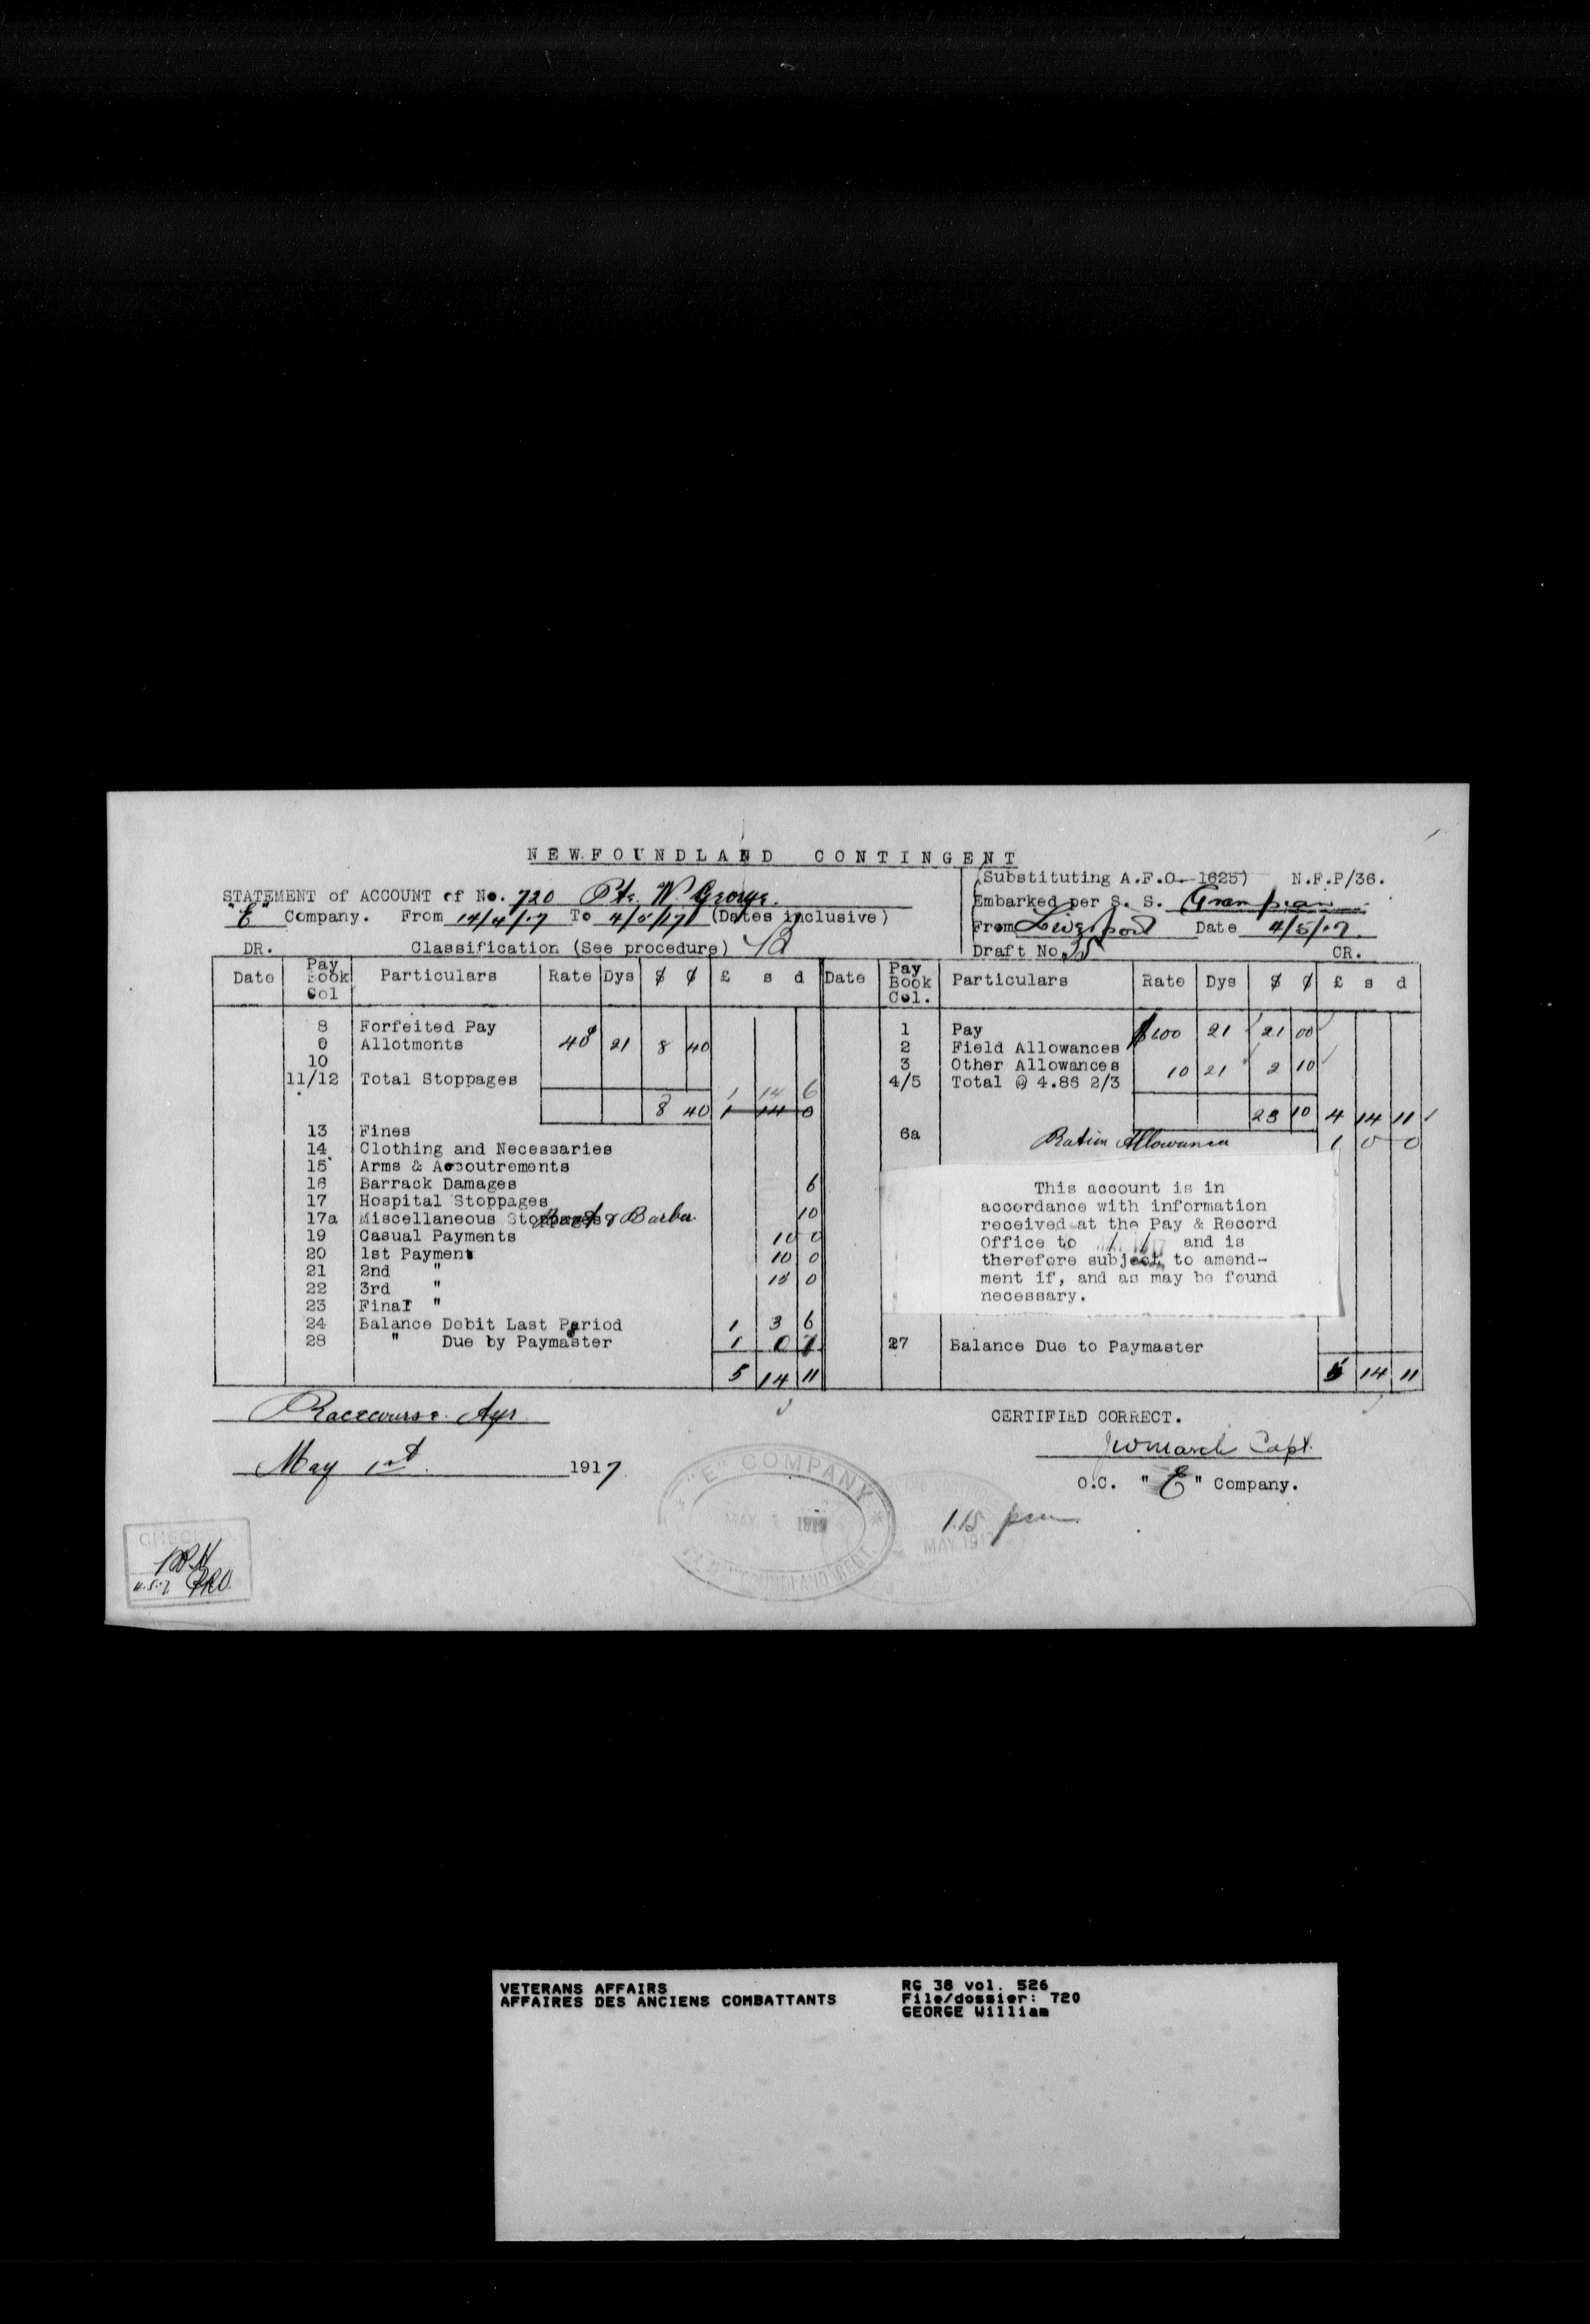 NEWFOUNDLAND CONTINGENT
(Substituting A.F.O. 1625) N.F.P/36.
STATEMENT of ACCOUNT of No. 720 Pte. W. George.
Embarked per S. S. Grampian
"E" Company. From 14/4/17 To 4/5/17 (Dates inclusive)
From Liverpool Date 4/5/17.
DR. Classification (See procedure)
Draft No. CR.
Date Pay Book Col Particulars Rate Dys $ ¢ £ s d Date Pay Book Col. Particulars Rate Dys $ ¢ £ s d
8 Forfeited Pay 1 Pay $1.00 21 21 00
9 Allotments 40¢ 21 8 40 2 Field Allowances
10 3 Other Allowances 10 21 2 10
11/12 Total Stoppages 4/5 Total @ 4.86 2/3
1 14 6
8 40 1 14 0 23 10 4 14 11
13 Fines 6a Ration Allowance 1 0 0
14 Clothing and Necessaries
15 Arms & Accoutrements
16 Barrack Damages 6
17 Hospital Stoppages
17a Miscellaneous Stoppages & Barber 10
19 Casual Payments 10 0
20 1st Payment 10 0
21 2nd " 10 0
22 3rd "
23 Final "
24 Balance Debit Last Period 1 3 6
28 " Due by Paymaster 1 0 7
27 Balance Due to Paymaster
5 14 11 5 14 11
This account is in
accordance with information
received at the Pay & Record
Office to / / and is
therefore subject to amend-
ment if, and as may be found
necessary.
Racecourse Ayr
CERTIFIED CORRECT.
JW March Capt.
May 1st. 1917
O.C. "E" Company.
"E" COMPANY
MAY 1
NEWFOUNDLAND REGT.
1.15 pm
MAY 1917
CHECKED
VETERANS AFFAIRS
AFFAIRES DES ANCIENS COMBATTANTS
RG 38 vol. 526
File/dossier: 720
GEORGE William